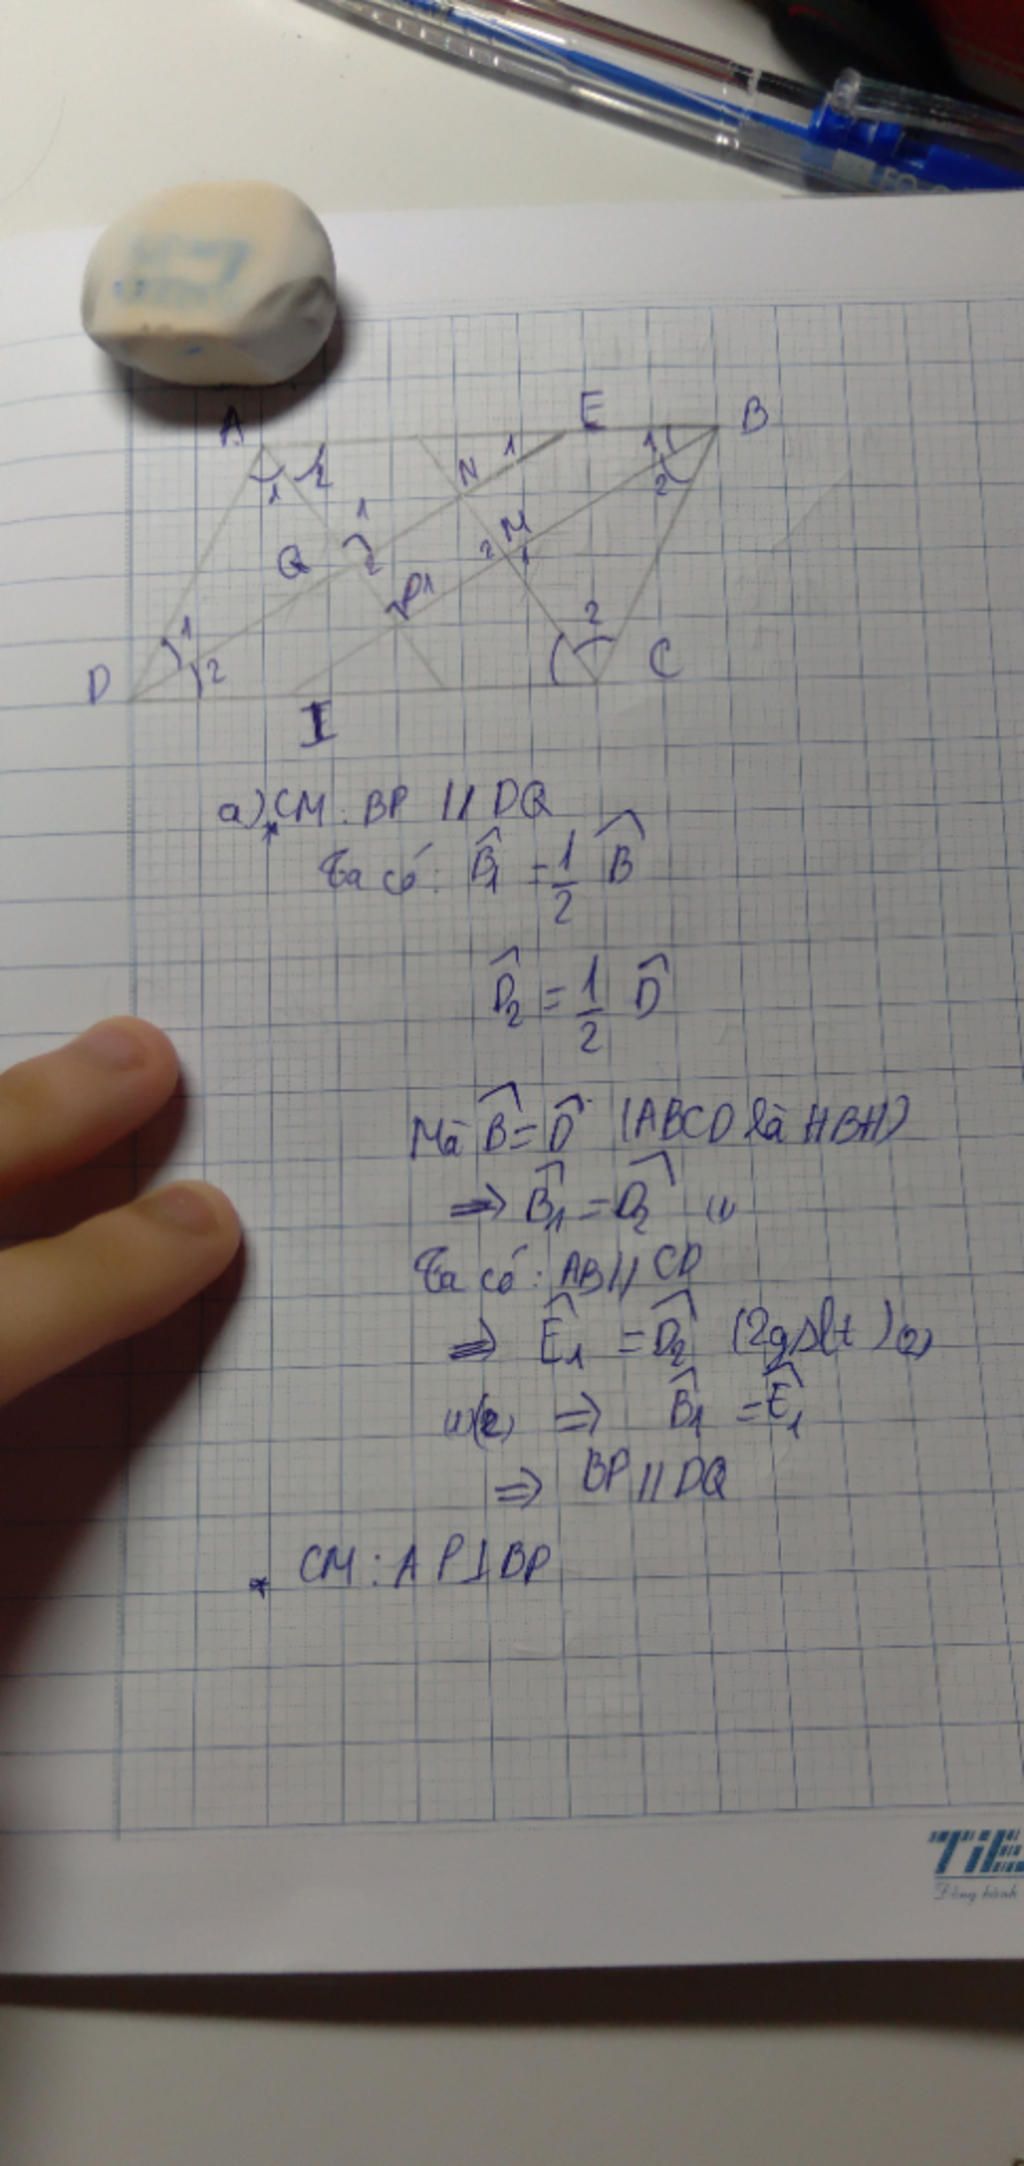 A E B
1 1
N 2
1 2
1 M
Q 2 2 1
P1
1 2
D 2 C
I
a) * CM: BP // DQ
Ta có: B̂₁ = 1/2 B̂
D̂₂ = 1/2 D̂
Mà B̂ = D̂ (ABCD là HBH)
=> B̂₁ = D̂₂ (1)
Ta có: AB // CD
=> Ê₁ = D̂₂ (2gslt) (2)
(1)(2) => B̂₁ = Ê₁
=> BP // DQ
* CM: AP⊥BP
Đồng hành